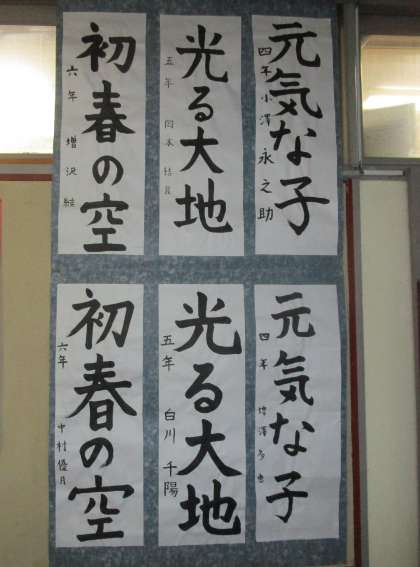 元気な子
四年 小澤 永之助
光る大地
五年 岡本
初春の空
六年 増沢 絵
元気な子
四年 増澤
光る大地
五年 白川 千陽
初春の空
六年 中村 優月